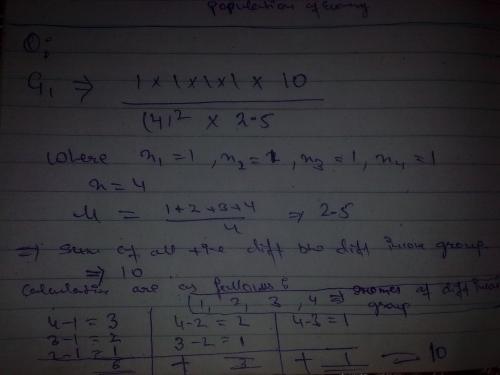 population of
Q:
G₁ ⇒ 1 x 1 x 1 x 1 x 10
(4)² x 2.5
where n₁ = 1 , n₂ = 1 , n₃ = 1 , n₄ = 1
n = 4
M = 1+2+3+4 ⇒ 2.5
4
⇒ sum of all +ive diff b/w diff income group
⇒ 10
Calculation are as follows :
(1, 2, 3, 4 ⇒ incomes of diff
group
4-1 = 3 4-2 = 2 4-3 = 1
3-1 = 2 3-2 = 1
2-1 = 1
6 + 3 + 1 = 10